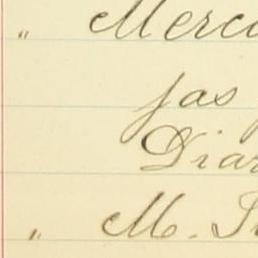 " Merc
Jas
Diar
" M. S